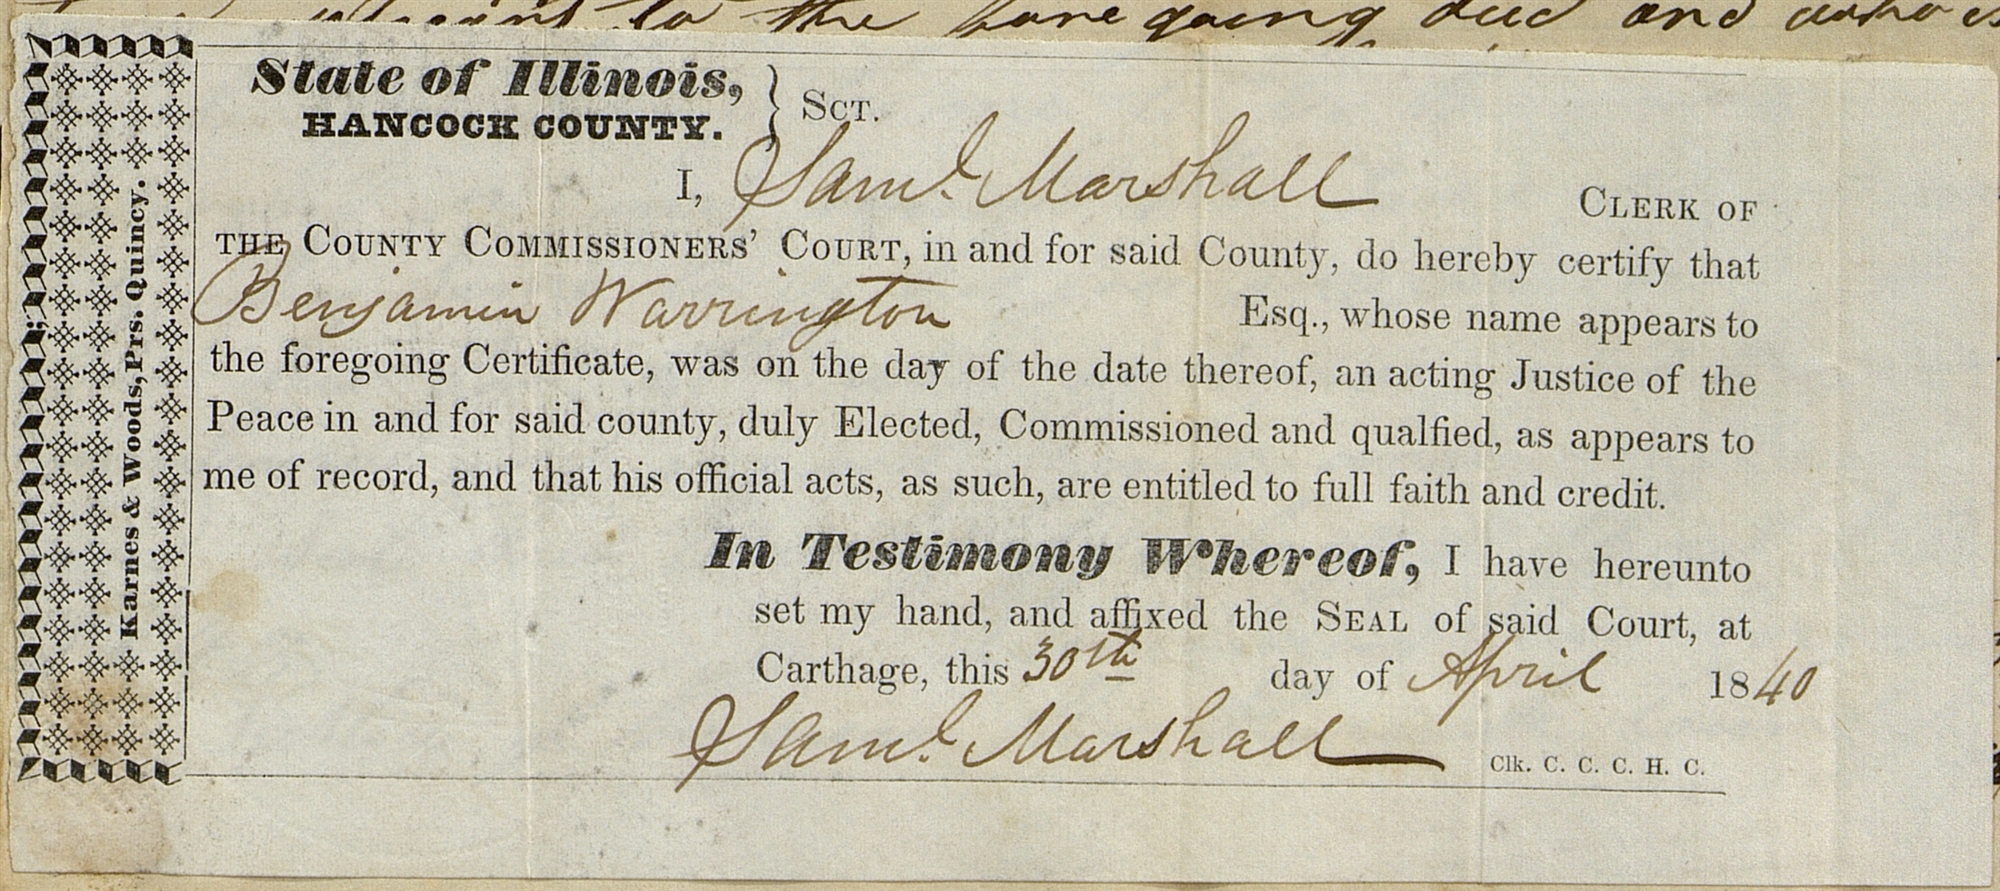 to the foregoing deed and who is
State of Illinois,
HANCOCK COUNTY. } SCT.
I, Saml. Marshall CLERK OF
THE COUNTY COMMISSIONERS' COURT, in and for said County, do hereby certify that
Benjamin Warrington Esq., whose name appears to
the foregoing Certificate, was on the day of the date thereof, an acting Justice of the
Peace in and for said county, duly Elected, Commissioned and qualfied, as appears to
me of record, and that his official acts, as such, are entitled to full faith and credit.
In Testimony Whereof, I have hereunto
set my hand, and affixed the SEAL of said Court, at
Carthage, this 30th day of April 1840
Saml. Marshall Clk. C. C. C. H. C.
Karnes & Woods, Prs. Quincy.